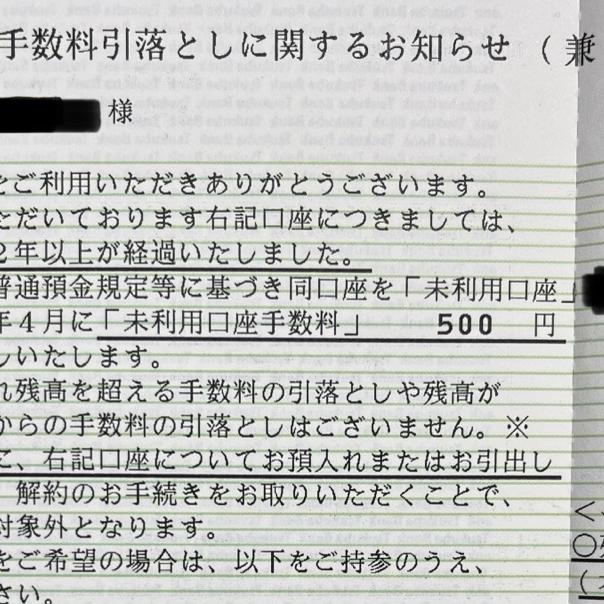 手数料引落としに関するお知らせ（兼
様
をご利用いただきありがとうございます。
ただいております右記口座につきましては、
2年以上が経過いたしました。
普通預金規定等に基づき同口座を「未利用口座」
年4月に「未利用口座手数料」 500 円
しいたします。
れ残高を超える手数料の引落としや残高が
からの手数料の引落としはございません。※
に、右記口座についてお預入れまたはお引出し
解約のお手続きをお取りいただくことで、
対象外となります。
をご希望の場合は、以下をご持参のうえ、
さい。